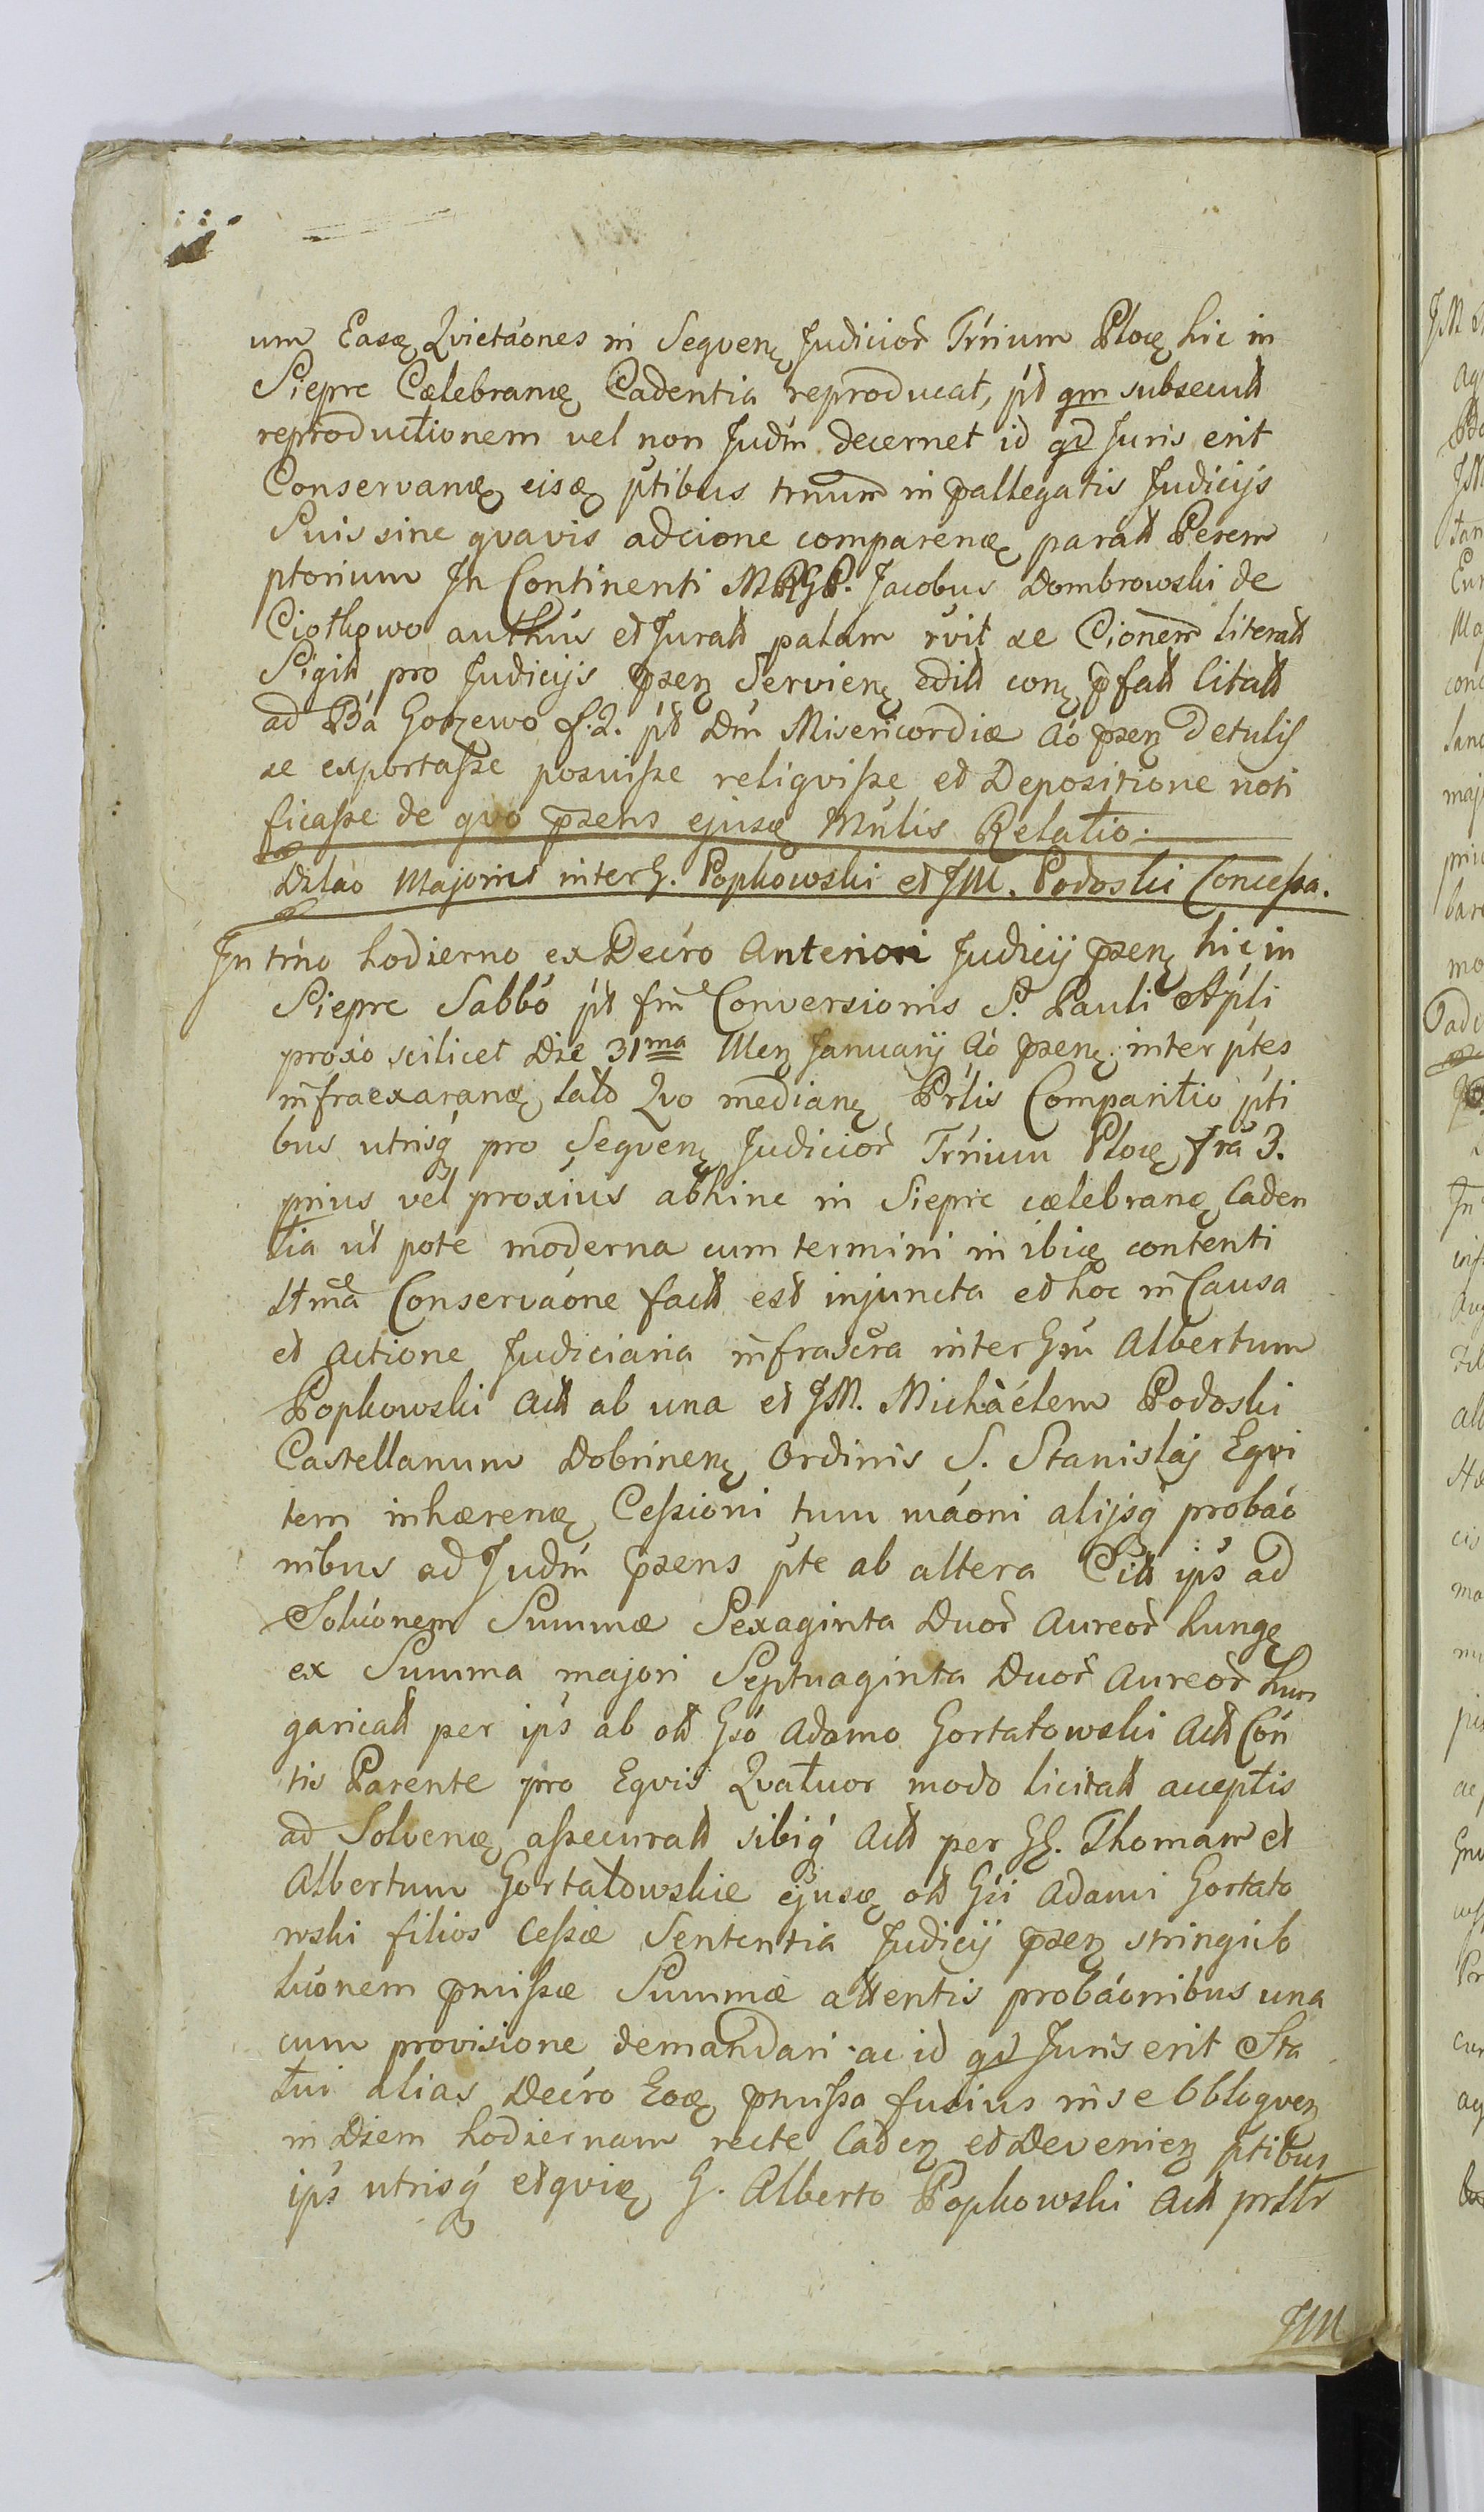 um Easę Qvietáones in Seqvenę Judicior̃ Tŕnium Plocę hic in
Sieprc Cælebranę Cadentia reproducat, pt̃t qm subsecutt
reproductionem vel non Judm̃ decernet id qd Juris erit
Conservanę eisę ptibus trnum in p̃allegatis Judicijs
Suis sine qvavis adcione comparenę paratt Perem
ptorium In Continenti Jacobus Dombrowski de
Ciołkowo authús et Juratt palam r̃vit se Cionem̃ literatt
Sigitt pro Judicijs p̃senę Servienę editt conę p̃fatt litatt
ad Bá Gorzewo f. 2. pt̃t Dm̃ Misericordiæ Aó p̃senę Detulis
se exportaſse posuiſse reliqviſse et Depositione noti
ficaſse de qvo p̃sens ejusę Mńlis Relatio.
Dilao Majoris inter G. Popkowski et JM. Podoski Conceſsa.
In tŕno hodierno ex Decŕo Anteriori Judicij p̃senę hic in
Sieprc Sabbó pt̃t fm̃ Conversionis S. Pauli Apĺi
proxó scilicet Die 31ma Menę Januarij Aó p̃senę inter ptes
infraexaranę lató Qvo medianę Pŕlis Comparitio pti
bus utrisq́ pro Seqvenę Judicior̃ Tŕnium Plocę fra 3.
prius vel proxius abhinc in Sieprc cælebranę Caden
tia ut pote moderna cum termini in ibię contenti
Conserváone factt est injuncta et hoc in Causa
et actione Judiciaria infrascr̃a inter Gnm̃ Albertum
Popkowski Actt ab una et JM. Michaélem Podoski
Castellanum Dobrinenę Ordinis S. Stanislaj Eqvi
tem inhærenę Ceſsioni tum máoni alijsq́ probáo
nibus ad Judm̃ p̃sens pte ab altera Citt ips̃ ad
Solúonem Summæ Sexaginta Duor̃ Aureor̃ hungę
ex Summa majori Septuaginta Duor̃ Aureor̃ hun
garicatt per ips̃ ab ott Gsó Adamo Gortatowski Actt Cón
tis Parente pro Eqvis Qvatuor modo licitatt acceptis
ad Solvenę aſsecuratt sibiq́ Actt per GG. Thomam et
Albertum Gortatowskie ejusę ott Gśi Adami Gortato
wski filios Ceſsæ Sententia Judicij p̃senę stringi So
lúonem p̃miſsæ Summæ attentis probáonibus una
cum provisione demandari ac id qd Juris erit Sta
tui alias Decŕo Eoę p̃miſsa fusius in se Obloqvenę
in Diem hodiernam recte Cadenę et Devenienę ptibus
ips̃ utrisq́ et qvię G. Alberto Popkowski Actt prttr
JM